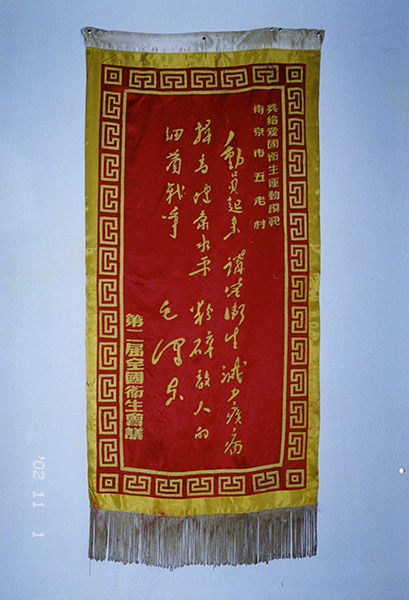 獎給愛國衛生運動模範
南京市五老村
動員起来 講究衛生 減少疾病
提高健康水平 粉碎敌人的
细菌戰争
毛澤东
第二屆全國衛生會議
'02 11 1